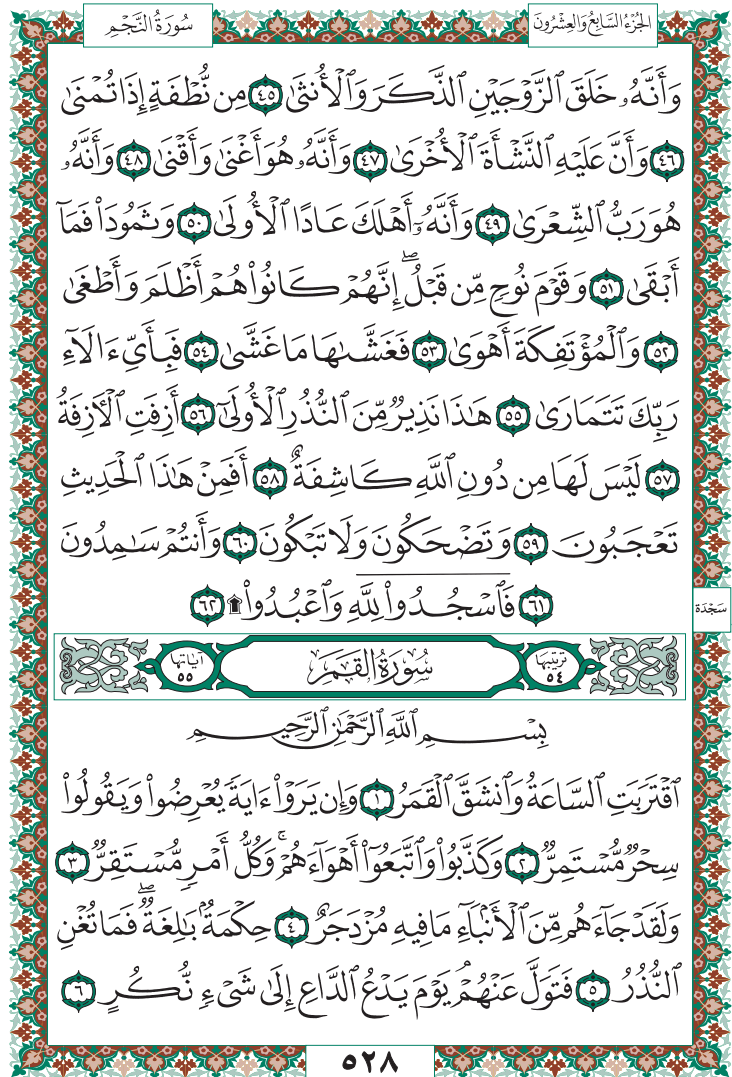 الجُزْءُ السَّابِعُ وَالعِشْرُونَ
سُورَةُ النَّجْمِ
وَأَنَّهُۥ خَلَقَ ٱلزَّوْجَيْنِ ٱلذَّكَرَ وَٱلْأُنثَىٰ ٤٥ مِن نُّطْفَةٍ إِذَا تُمْنَىٰ
٤٦ وَأَنَّ عَلَيْهِ ٱلنَّشْأَةَ ٱلْأُخْرَىٰ ٤٧ وَأَنَّهُۥ هُوَ أَغْنَىٰ وَأَقْنَىٰ ٤٨ وَأَنَّهُۥ
هُوَ رَبُّ ٱلشِّعْرَىٰ ٤٩ وَأَنَّهُۥٓ أَهْلَكَ عَادًا ٱلْأُولَىٰ ٥٠ وَثَمُودَا۟ فَمَآ
أَبْقَىٰ ٥١ وَقَوْمَ نُوحٍ مِّن قَبْلُ ۖ إِنَّهُمْ كَانُوا۟ هُمْ أَظْلَمَ وَأَطْغَىٰ
٥٢ وَٱلْمُؤْتَفِكَةَ أَهْوَىٰ ٥٣ فَغَشَّىٰهَا مَا غَشَّىٰ ٥٤ فَبِأَىِّ ءَالَآءِ
رَبِّكَ تَتَمَارَىٰ ٥٥ هَٰذَا نَذِيرٌ مِّنَ ٱلنُّذُرِ ٱلْأُولَىٰٓ ٥٦ أَزِفَتِ ٱلْـَٔازِفَةُ
٥٧ لَيْسَ لَهَا مِن دُونِ ٱللَّهِ كَاشِفَةٌ ٥٨ أَفَمِنْ هَٰذَا ٱلْحَدِيثِ
تَعْجَبُونَ ٥٩ وَتَضْحَكُونَ وَلَا تَبْكُونَ ٦٠ وَأَنتُمْ سَٰمِدُونَ
٦١ فَٱسْجُدُوا۟ لِلَّهِ وَٱعْبُدُوا۟ ۩ ٦٢
سَجْدَة
ترتيبها ٥٤
سُورَةُ القَمَر
آياتها ٥٥
بِسْمِ ٱللَّهِ ٱلرَّحْمَٰنِ ٱلرَّحِيمِ
ٱقْتَرَبَتِ ٱلسَّاعَةُ وَٱنشَقَّ ٱلْقَمَرُ ١ وَإِن يَرَوْا۟ ءَايَةً يُعْرِضُوا۟ وَيَقُولُوا۟
سِحْرٌ مُّسْتَمِرٌّ ٢ وَكَذَّبُوا۟ وَٱتَّبَعُوٓا۟ أَهْوَآءَهُمْ ۚ وَكُلُّ أَمْرٍ مُّسْتَقِرٌّ ٣
وَلَقَدْ جَآءَهُم مِّنَ ٱلْأَنۢبَآءِ مَا فِيهِ مُزْدَجَرٌ ٤ حِكْمَةٌۢ بَٰلِغَةٌ ۖ فَمَا تُغْنِ
ٱلنُّذُرُ ٥ فَتَوَلَّ عَنْهُمْ ۘ يَوْمَ يَدْعُ ٱلدَّاعِ إِلَىٰ شَىْءٍ نُّكُرٍ ٦
٥٢٨